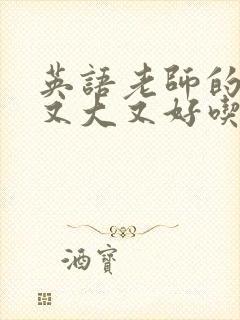 英語老師的
又大又好喫
酒寶